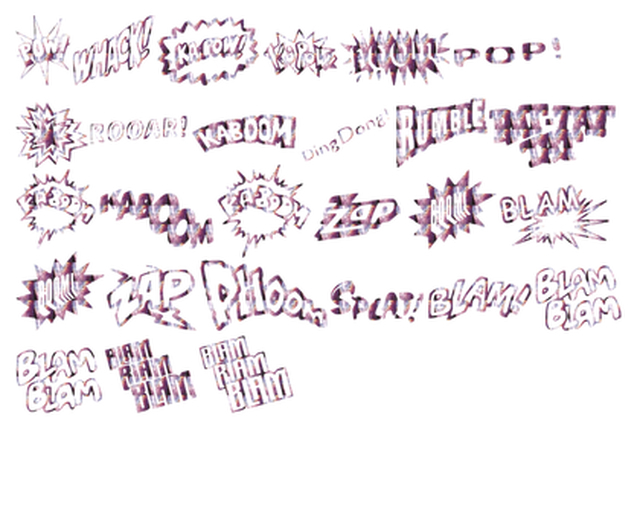 POW! WHACK! KA-POW! KAPOW POP!
ROOAR! KABOOM Ding Dong! RUMBLE RAT-TAT TAT
KABOOM KABOOOM KABOOM Zap BLAM
ZAP PHOOOM SPLAT! BLAM! BLAM BLAM
BLAM BLAM BLAM BLAM BLAM BLAM BLAM BLAM